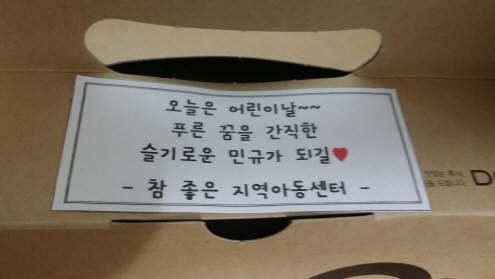 오늘은 어린이날~~
푸른 꿈을 간직한
슬기로운 민규가 되길♥
- 참 좋은 지역아동센터 -